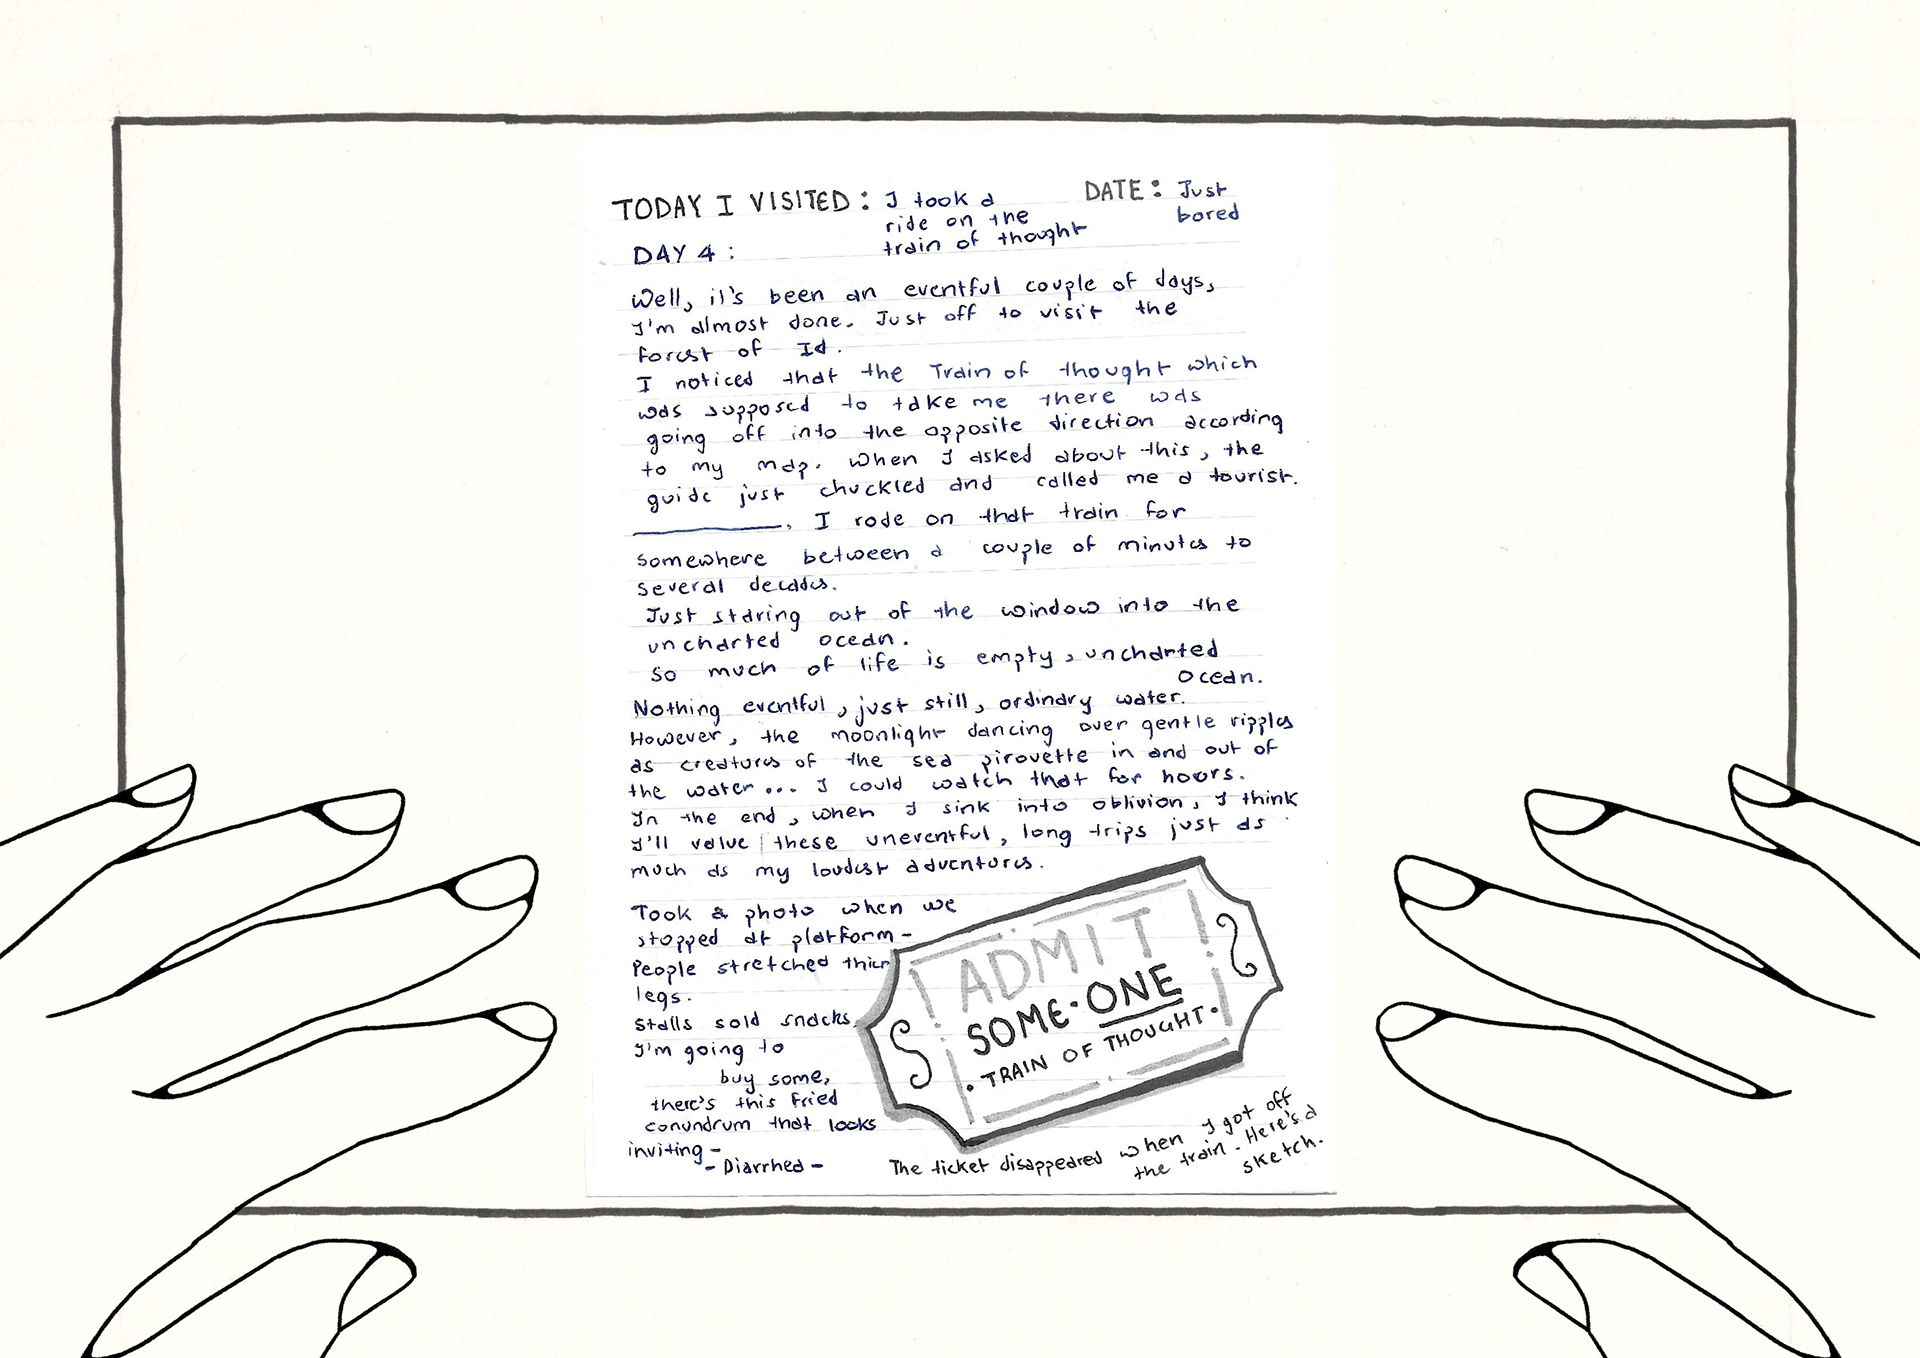 TODAY I VISITED: I took a
ride on the
train of thought
DATE: Just
bored
DAY 4:
Well, it's been an eventful couple of days,
I'm almost done. Just off to visit the
forest of Id.
I noticed that the Train of thought which
was supposed to take me there was
going off into the opposite direction according
to my map. When I asked about this, the
guide just chuckled and called me a tourist.
__________. I rode on that train for
somewhere between a couple of minutes to
several decades.
Just staring out of the window into the
uncharted ocean.
So much of life is empty, uncharted
ocean.
Nothing eventful, just still, ordinary water.
However, the moonlight dancing over gentle ripples
as creatures of the sea pirouette in and out of
the water... I could watch that for hours.
In the end, when I sink into oblivion, I think
I'll value these uneventful, long trips just as
much as my loudest adventures.
Took a photo when we
stopped at platform-
People stretched their
legs.
Stalls sold snacks,
I'm going to
buy some,
there's this fried
conundrum that looks
inviting-
- Diarrhea -
! ADMIT !
SOME·ONE
· TRAIN OF THOUGHT ·
The ticket disappeared when I got off
the train. Here's a
sketch.